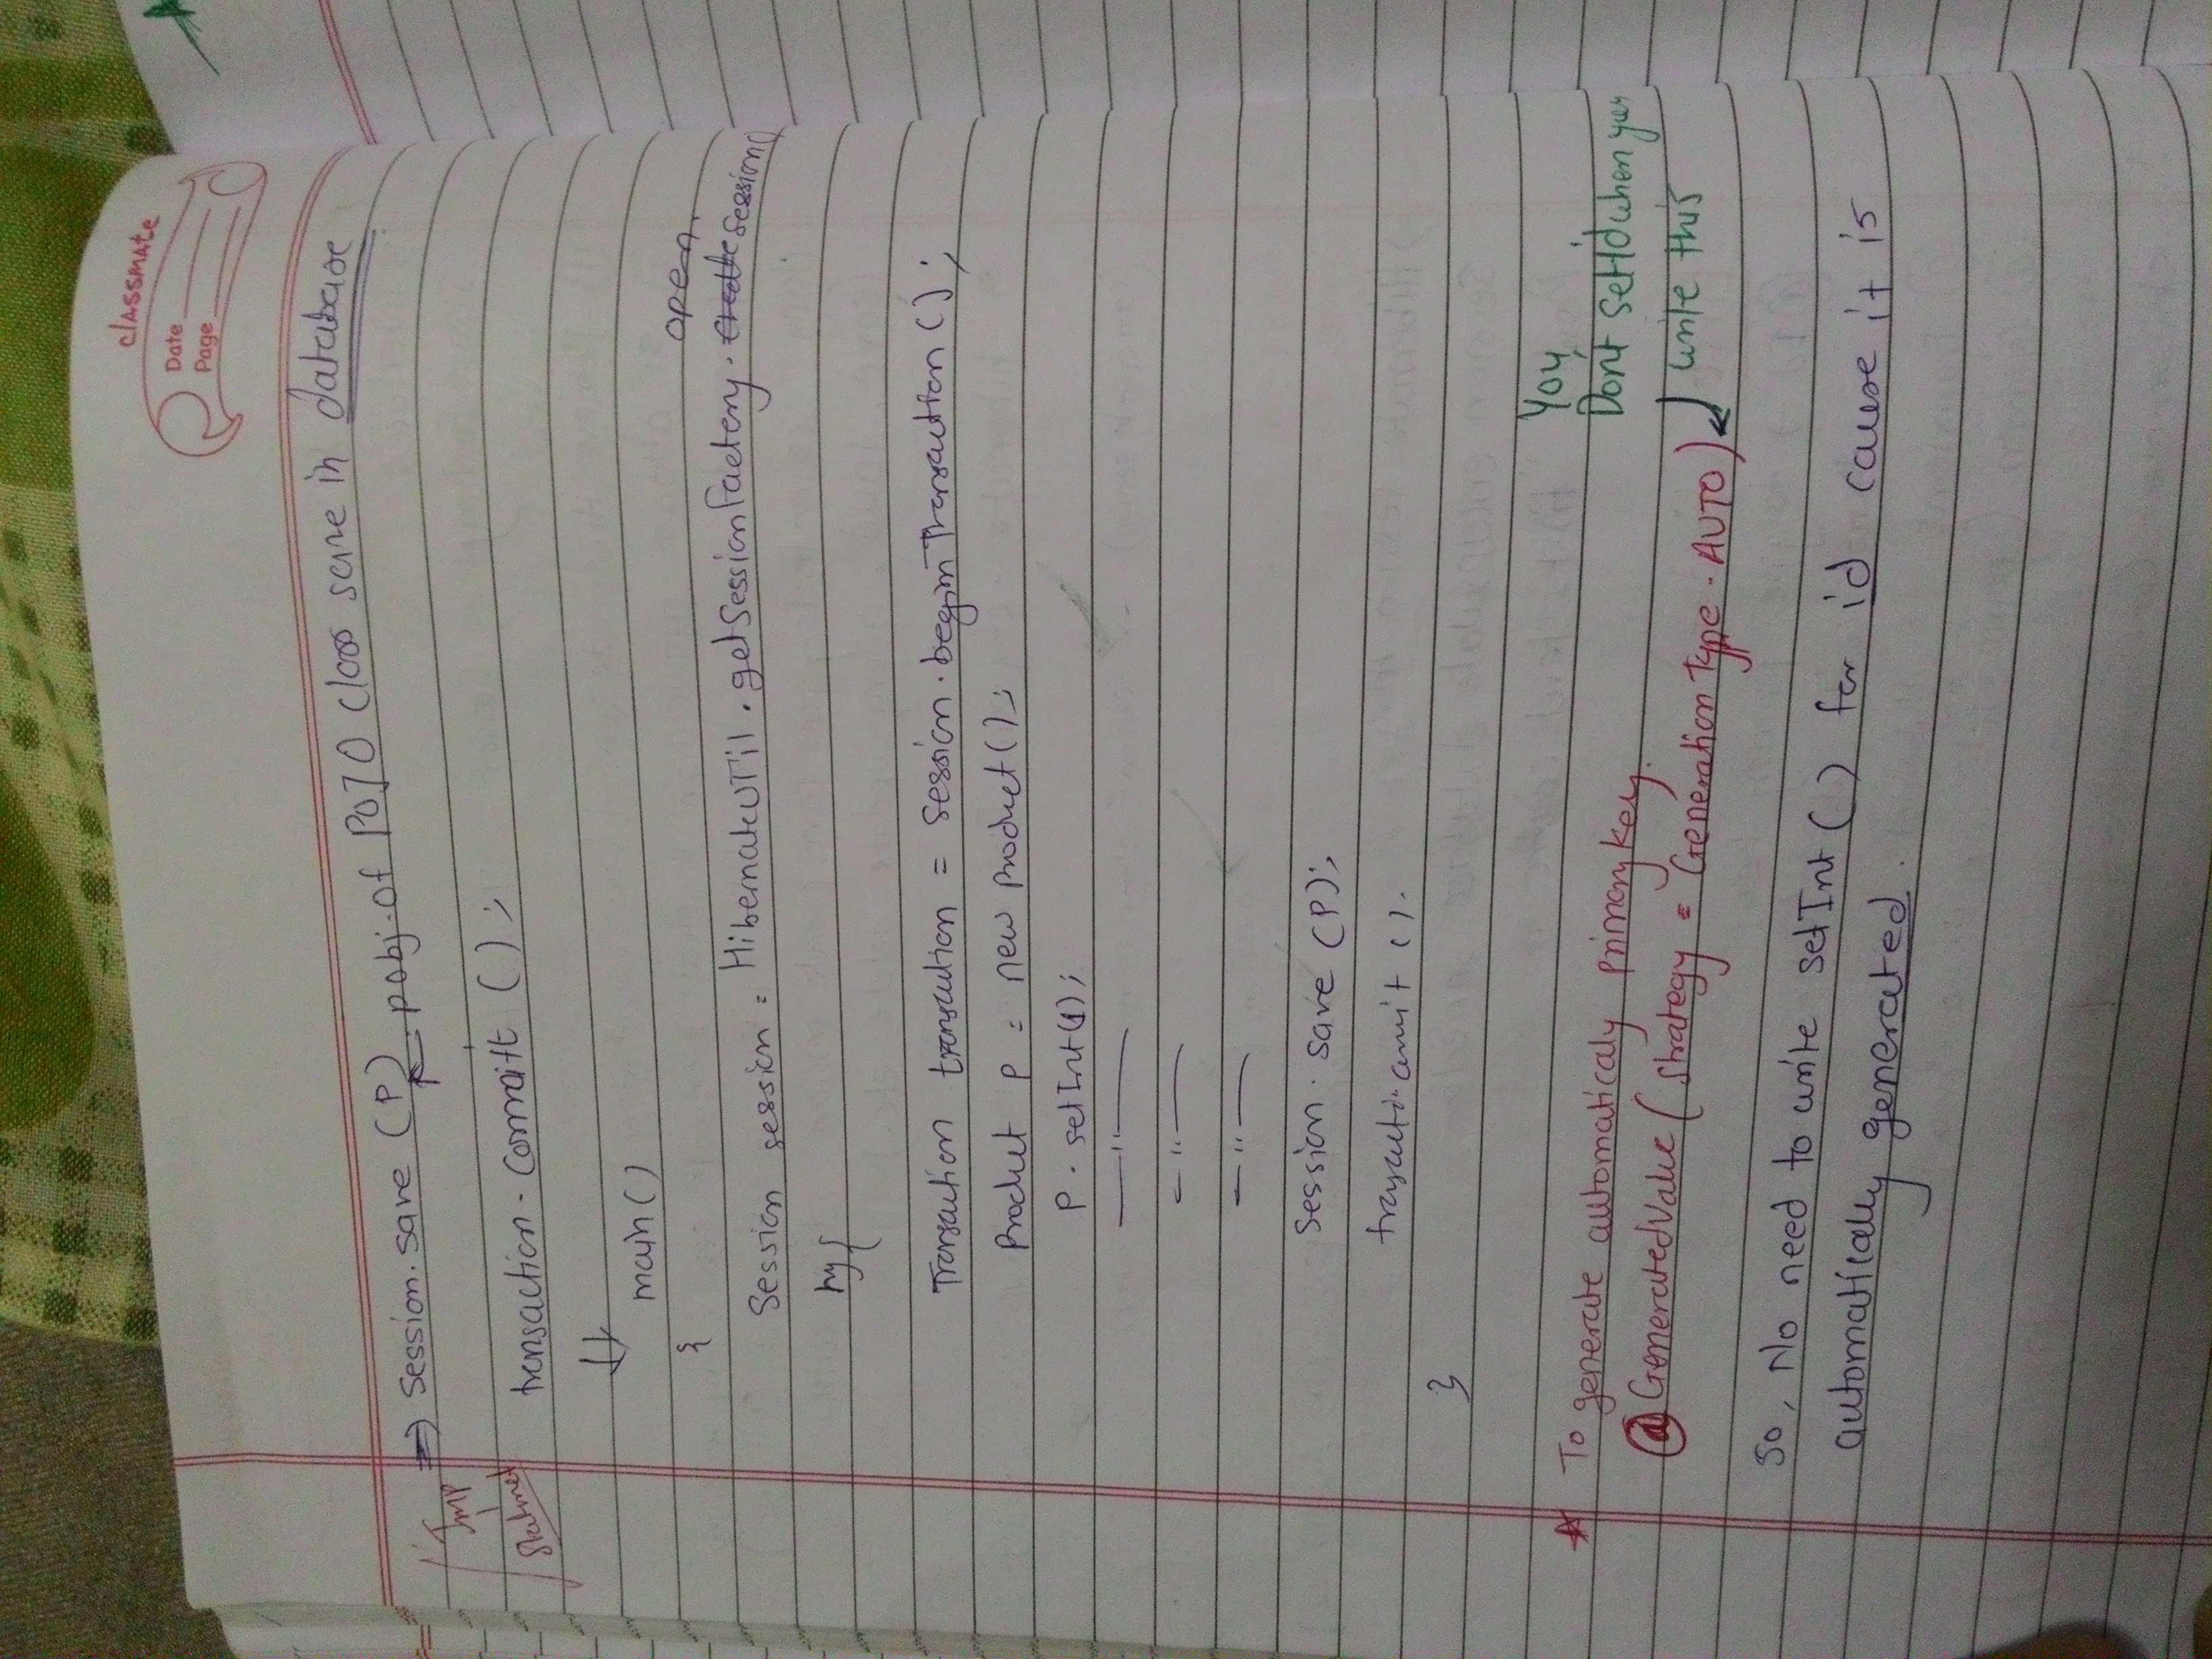 classmate
Date
Page
Imp
Statmet
=> Session.save (P) pobj.of POJO class save in database
transaction.committ ();
main()
{
open
Session session = HibernateUTil.getSessionFactery.Create Session()
try{
Transaction transaction = session.beginTransaction();
Product P = new Product();
P.setInt(1);
— " —
— " —
— " —
Session.save (P);
().
}
* To generate automaticaly primary key.
@ GeneratedValue (strategy = GenerationType.AUTO)
You
Don't setId when you
write this
So, No need to write setInt() for id cause it is
automatically generated.